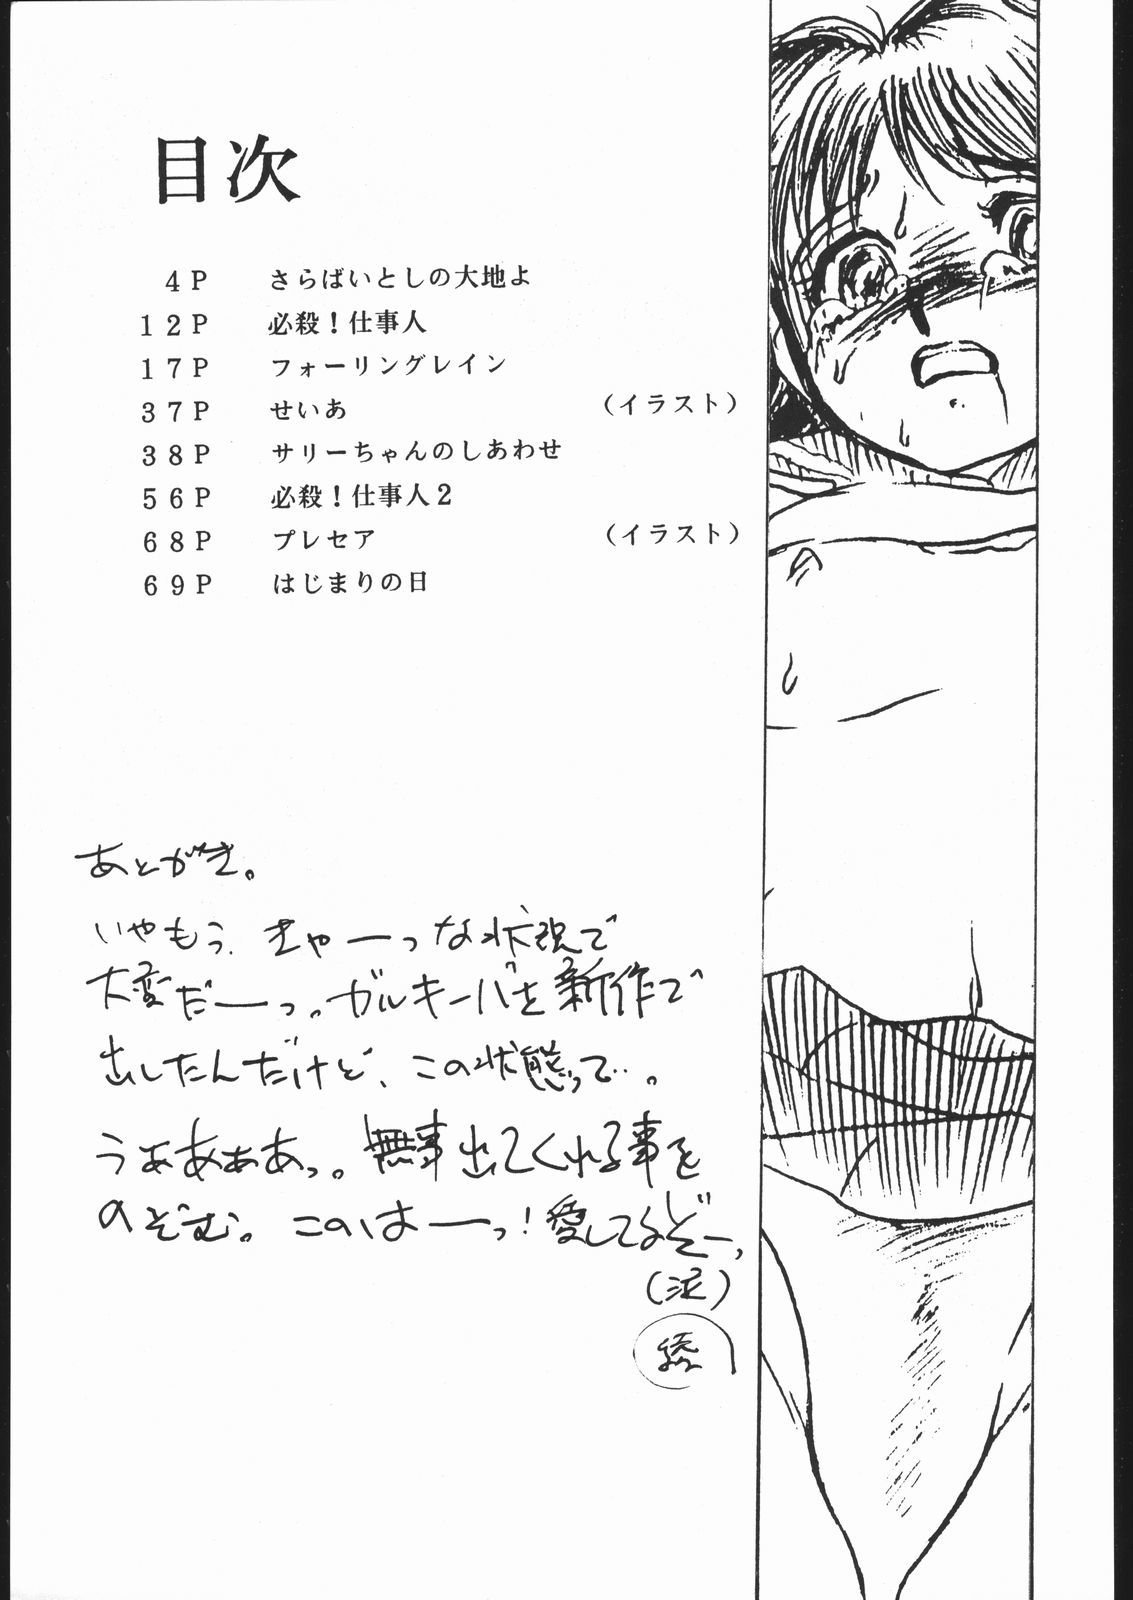 目次
4P さらばいとしの大地よ
12P 必殺！仕事人
17P フォーリングレイン
37P せいあ （イラスト）
38P サリーちゃんのしあわせ
56P 必殺！仕事人2
68P プレセア （イラスト）
69P はじまりの日
あとがき。
いやもう、きゃーっな状況で
大変だーっ。ガルキーバを新作で
出したんだけど、この状態って…。
うぁあぁぁあっ。無事出てくれる事を
のぞむ。このはーっ！愛してるぞー、
（泥）